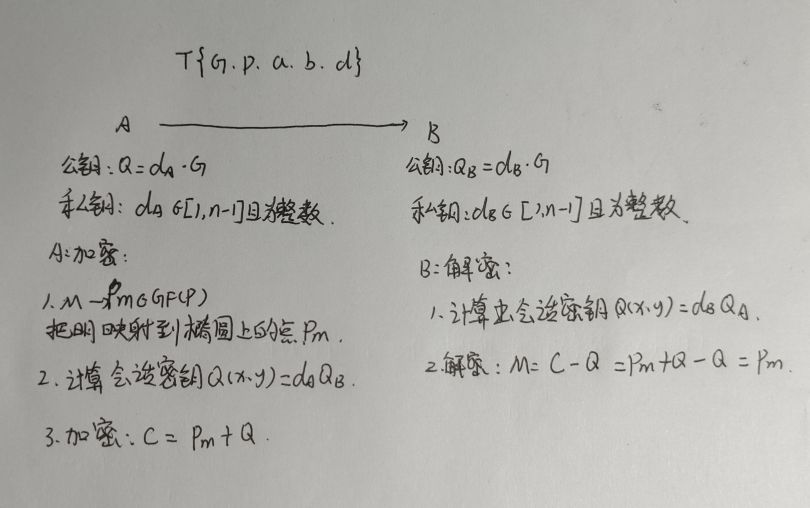 T{G.p.a.b.d}
A
B
公钥:Q=dA·G
私钥:dA∈[1,n-1]且为整数.
A:加密:
1.M→Pm∈GF(P)
把明映射到椭圆上的点Pm.
2.计算会话密钥Q(x,y)=dAQB.
3.加密:C=Pm+Q.
公钥:QB=dB·G
私钥:dB∈[1,n-1]且为整数.
B:解密:
1.计算出会话密钥Q(x,y)=dBQA.
2.解密:M=C-Q=Pm+Q-Q=Pm.